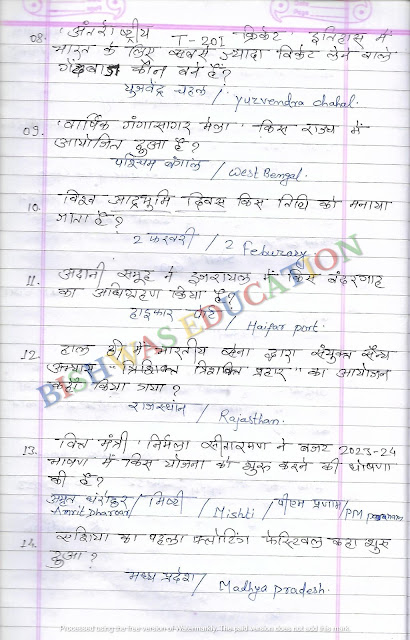 08. 'अंतर्राष्ट्रीय T-20I क्रिकेट' इतिहास में
भारत के लिए सबसे ज्यादा विकेट लेने वाले
गेंदबाज कौन बने हैं?
युजवेंद्र चहल / yuzvendra chahal.
09. 'वार्षिक गंगासागर मेला' किस राज्य में
आयोजित हुआ है?
पश्चिम बंगाल / West Bengal.
10. विश्व आद्रभूमि दिवस किस तिथि को मनाया
जाता है?
2 फरवरी / 2 Feburary
11. अदानी समूह ने इजरायल में किस बंदरगाह
का अधिग्रहण किया है?
हाइफार पोर्ट / Haifar port.
12. हाल ही में भारतीय सेना द्वारा संयुक्त सैन्य
अभ्यास "त्रिशक्ति प्रहार" का आयोजन
कहाँ किया गया?
राजस्थान / Rajasthan.
13. 'वित्त मंत्री' निर्मला सीतारमण ने बजट 2023-24
भाषण में किस योजना को शुरू करने की घोषणा
की है?
अमृत धरोहर / मिष्टी / Mishti / पीएम प्रणाम /
Amrit dharoar / PM pranam
14. एशिया का पहला फ्लोटिंग फेस्टिवल कहा शुरू
हुआ?
मध्य प्रदेश / Madhya pradesh.
BISHWAS EDUCATION
Processed using the free version of Watermarkly. The paid version does not add this mark.